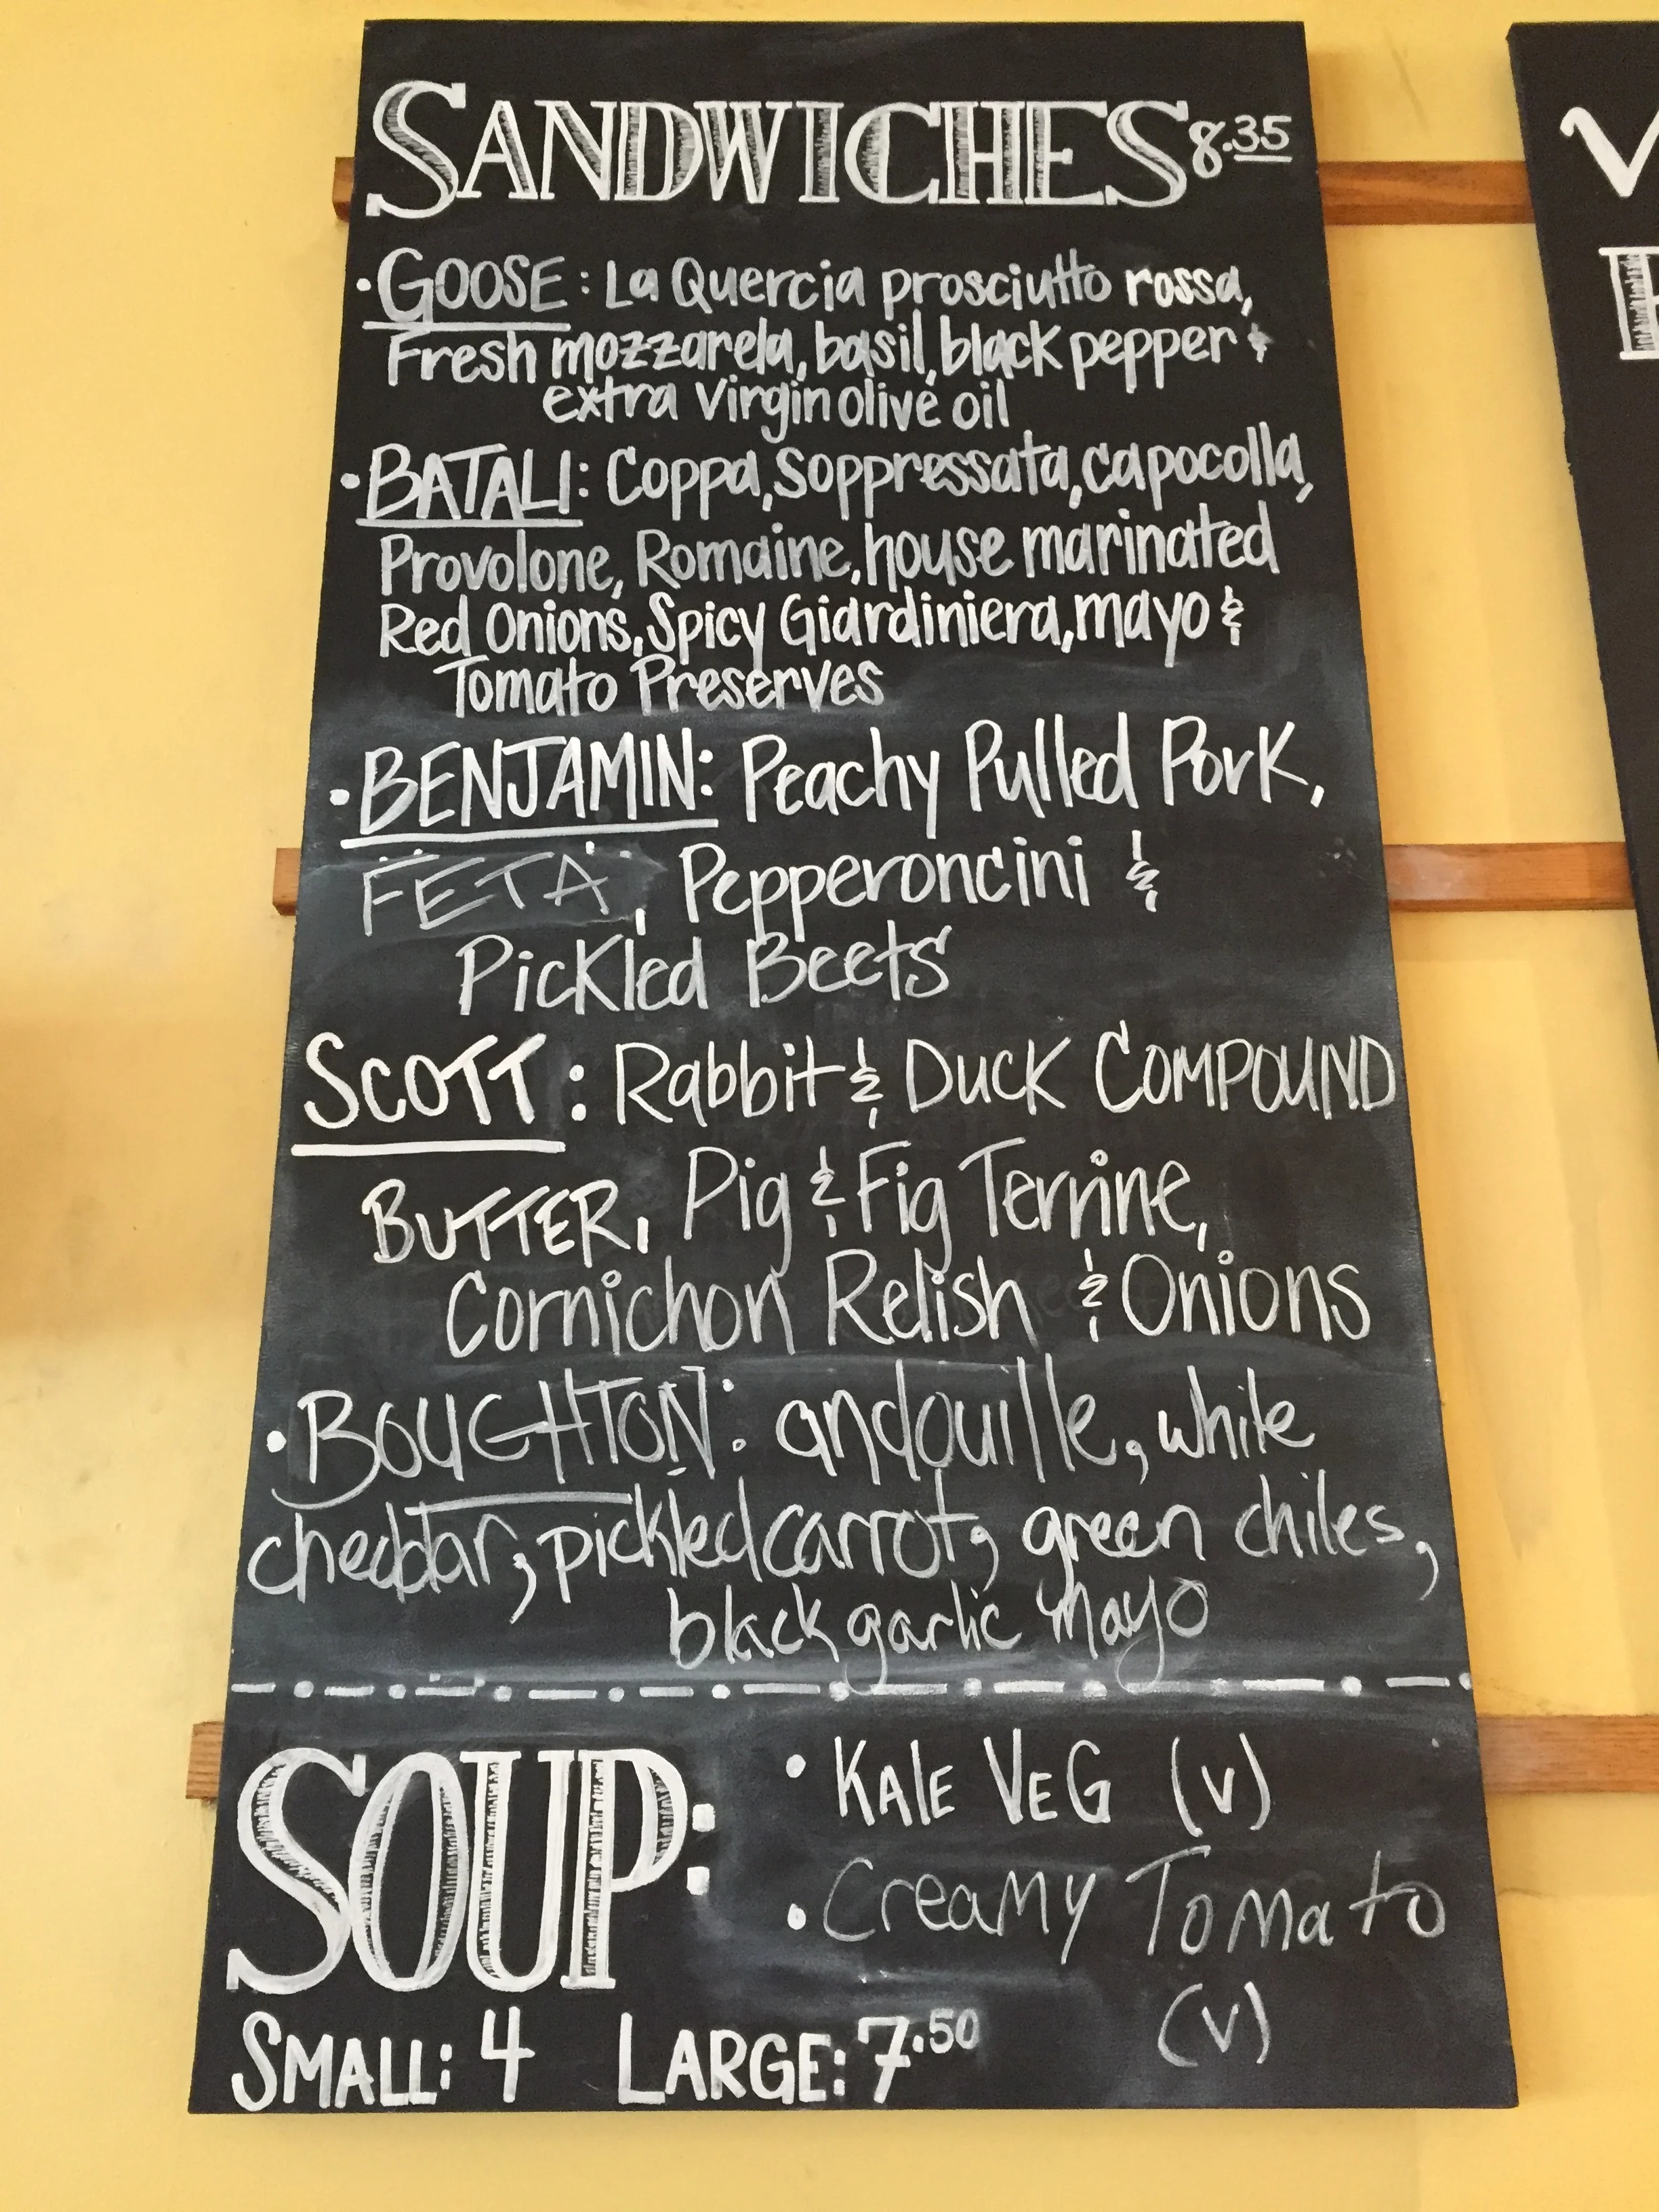 SANDWICHES 8.35
• GOOSE: La Quercia prosciutto rossa,
Fresh mozzarela, basil, black pepper &
extra virgin olive oil
• BATALI: Coppa, Soppressata, capocolla,
Provolone, Romaine, house marinated
Red Onions, Spicy Giardiniera, mayo &
Tomato Preserves
• BENJAMIN: Peachy Pulled Pork,
FETA, Pepperoncini &
Pickled Beets
SCOTT: Rabbit & Duck COMPOUND
BUTTER, Pig & Fig Terrine,
Cornichon Relish & Onions
• BOUGHTON: andouille, white
cheddar, pickled carrot, green chiles,
black garlic mayo
SOUP:
• KALE VEG (V)
• Creamy Tomato
(V)
SMALL: 4 LARGE: 7.50